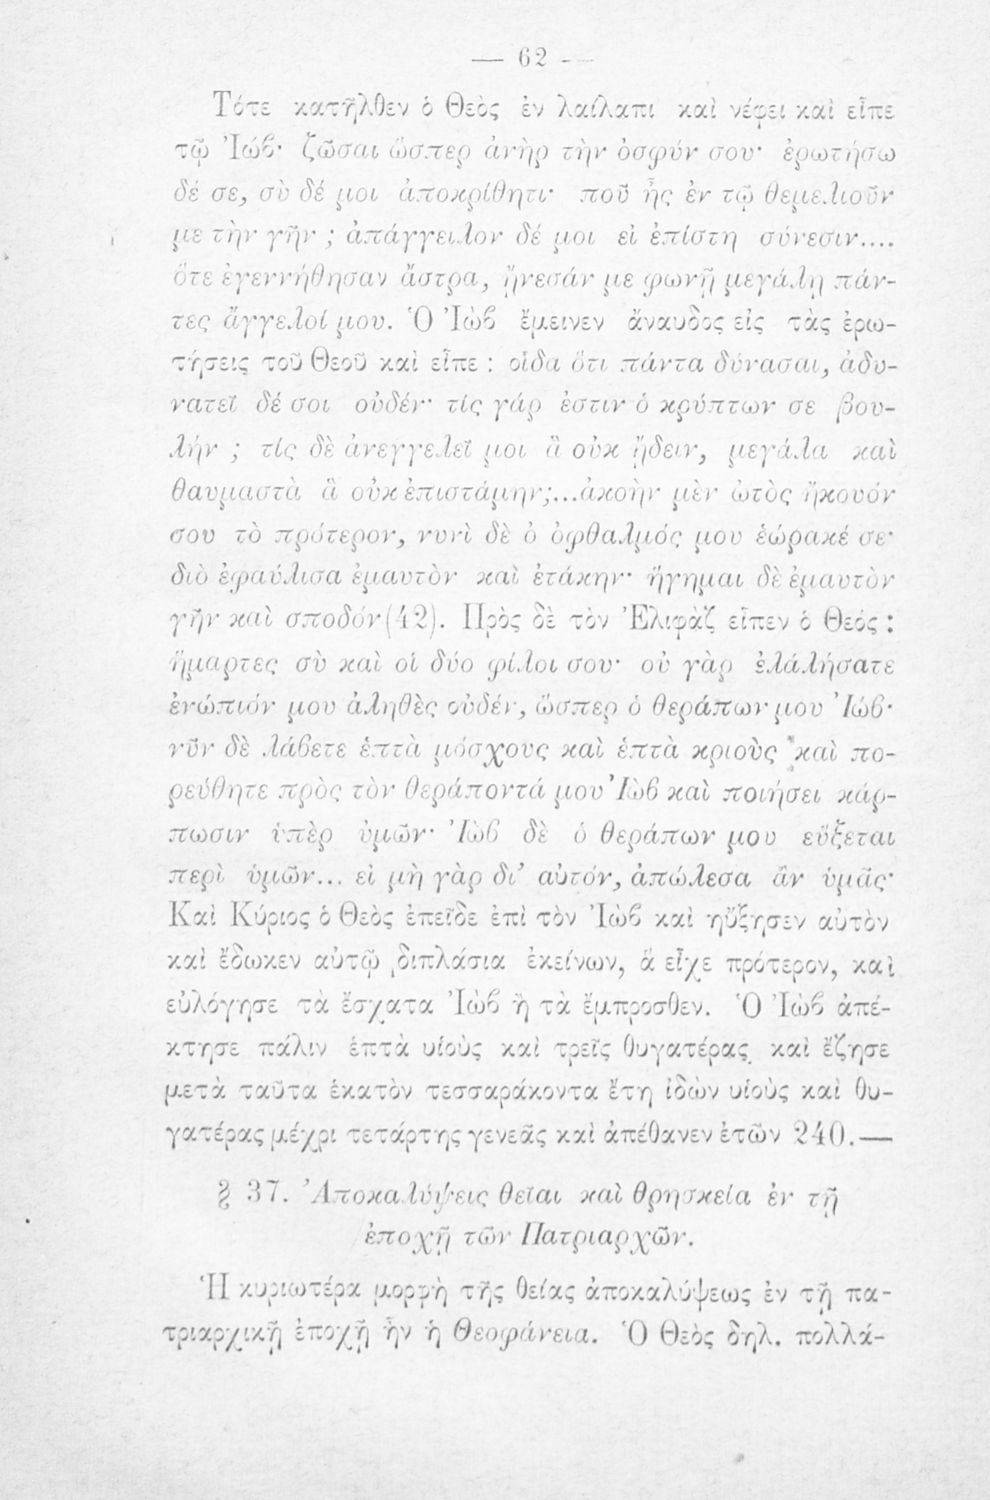 — 62 —
Τότε κατῆλθεν ὁ Θεὸς ἐν λαίλαπι καὶ νέφει καὶ εἶπε
τῷ Ἰώβ· ζῶσαι ὥσπερ ἀνὴρ τὴν ὀσφύν σου· ἐρωτήσω
δέ σε, σὺ δέ μοι ἀποκρίθητι· ποῦ ἦς ἐν τῷ θεμελιοῦν
με τὴν γῆν ; ἀπάγγειλον δέ μοι εἰ ἐπίστη σύνεσιν....
ὅτε ἐγεννήθησαν ἄστρα, ᾔνεσάν με φωνῇ μεγάλῃ πάν-
τες ἄγγελοί μου. Ὁ Ἰὼβ ἔμεινεν ἄναυδος εἰς τὰς ἐρω-
τήσεις τοῦ Θεοῦ καὶ εἶπε : οἶδα ὅτι πάντα δύνασαι, ἀδυ-
νατεῖ δέ σοι οὐδέν· τίς γάρ ἐστιν ὁ κρύπτων σε βου-
λήν ; τίς δὲ ἀνεγγελεῖ μοι ἃ οὐκ ᾔδειν, μεγάλα καὶ
θαυμαστὰ ἃ οὐκ ἐπιστάμην;...ἀκοὴν μὲν ὠτὸς ἤκουόν
σου τὸ πρότερον, νυνὶ δὲ ὁ ὀφθαλμός μου ἑώρακέ σε·
διὸ ἐφαύλισα ἐμαυτὸν καὶ ἐτάκην· ἥγημαι δὲ ἐμαυτὸν
γῆν καὶ σποδόν(42). Πρὸς δὲ τὸν Ἐλιφὰζ εἶπεν ὁ Θεός :
ἥμαρτες σὺ καὶ οἱ δύο φίλοι σου· οὐ γὰρ ἐλάλήσατε
ἐνώπιόν μου ἀληθὲς οὐδέν, ὥσπερ ὁ θεράπων μου Ἰώβ·
νῦν δὲ λάβετε ἑπτὰ μόσχους καὶ ἑπτὰ κριοὺς καὶ πο-
ρεύθητε πρὸς τὸν θεράποντά μου Ἰὼβ καὶ ποιήσει κάρ-
πωσιν ὑπὲρ ὑμῶν· Ἰὼβ δὲ ὁ θεράπων μου εὔξεται
περὶ ὑμῶν... εἰ μὴ γὰρ δι' αὐτόν, ἀπώλεσα ἂν ὑμᾶς·
Καὶ Κύριος ὁ Θεὸς ἐπεῖδε ἐπὶ τὸν Ἰὼβ καὶ ηὔξησεν αὐτὸν
καὶ ἔδωκεν αὐτῷ διπλάσια ἐκείνων, ἅ εἶχε πρότερον, καὶ
εὐλόγησε τὰ ἔσχατα Ἰὼβ ἢ τὰ ἔμπροσθεν. Ὁ Ἰὼβ ἀπέ-
κτησε πάλιν ἑπτὰ υἱοὺς καὶ τρεῖς θυγατέρας καὶ ἔζησε
μετὰ ταῦτα ἑκατὸν τεσσαράκοντα ἔτη ἰδὼν υἱοὺς καὶ θυ-
γατέρας μέχρι τετάρτης γενεᾶς καὶ ἀπέθανεν ἐτῶν 240.—
§ 37. Ἀποκαλύψεις θεῖαι καὶ θρησκεία ἐν τῇ
ἐποχῇ τῶν Πατριαρχῶν.
Ἡ κυριωτέρα μορφὴ τῆς θείας ἀποκαλύψεως ἐν τῇ πα-
τριαρχικῇ ἐποχῇ ἦν ἡ Θεοφάνεια. Ὁ Θεὸς δηλ. πολλά-